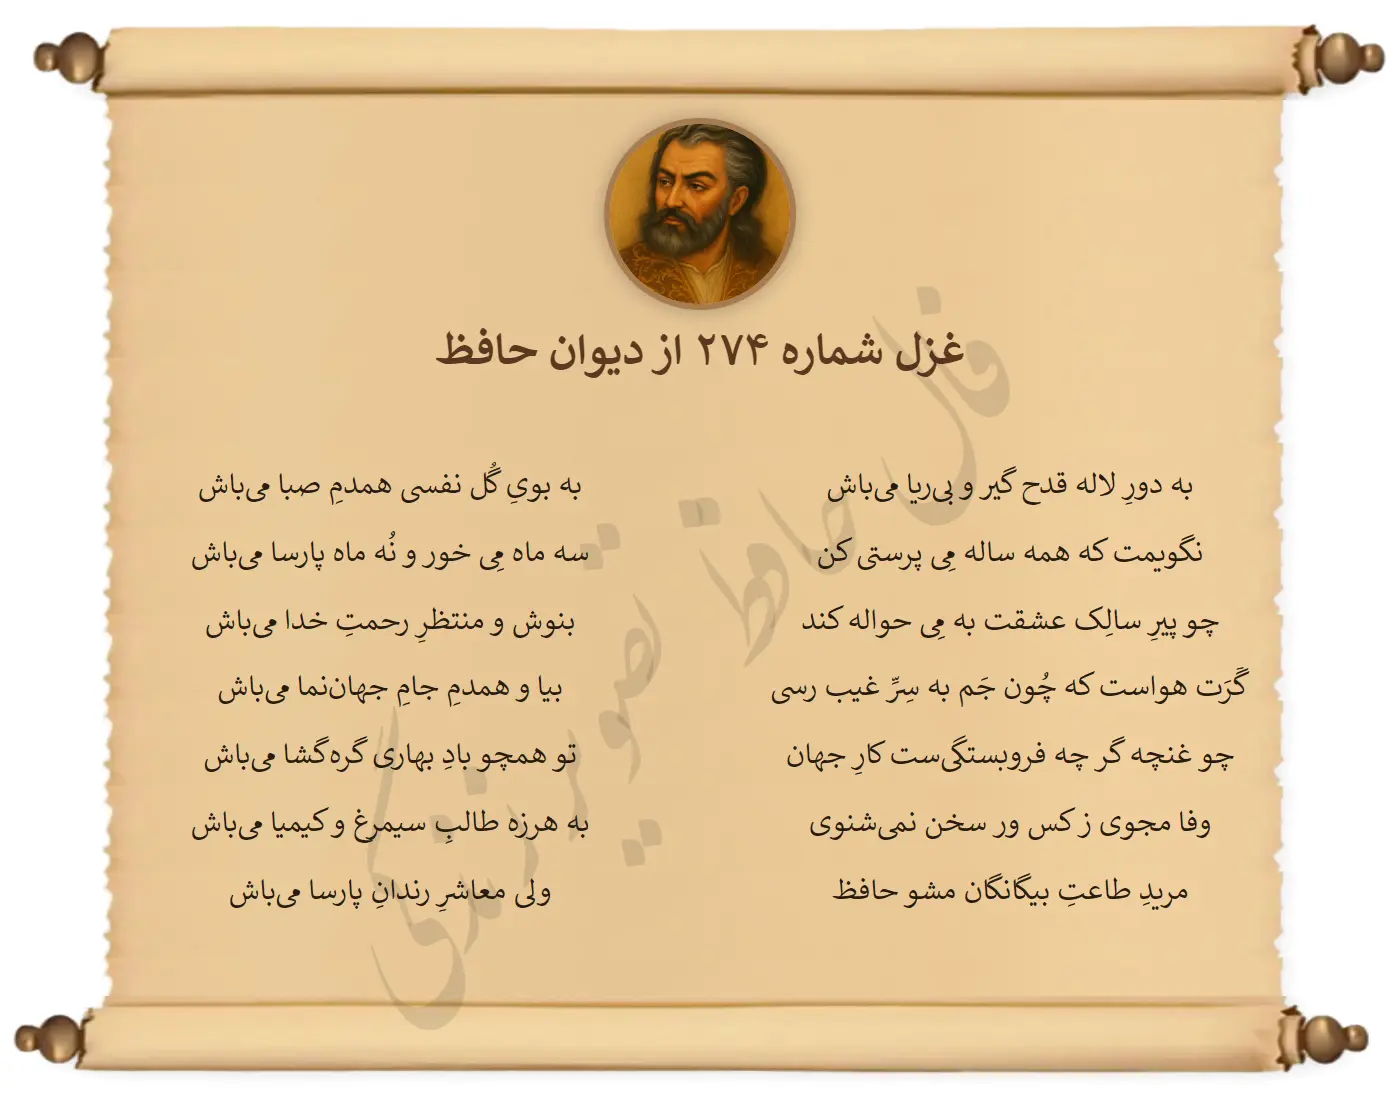 غزل شماره ۲۷۴ از دیوان حافظ
به دورِ لاله قدح گیر و بی‌ریا می‌باش
به بویِ گُل نفسی همدمِ صبا می‌باش
نگویمت که همه ساله مِی پرستی کن
سه ماه مِی خور و نُه ماه پارسا می‌باش
چو پیرِ سالِک عشقت به مِی حواله کند
بنوش و منتظرِ رحمتِ خدا می‌باش
گَرَت هواست که چُون جَم به سِرِّ غیب رسی
بیا و همدمِ جامِ جهان‌نما می‌باش
چو غنچه گر چه فروبستگی‌ست کارِ جهان
تو همچو بادِ بهاری گره‌گشا می‌باش
وفا مجوی ز کس ور سخن نمی‌شنوی
به هرزه طالبِ سیمرغ و کیمیا می‌باش
مریدِ طاعتِ بیگانگان مشو حافظ
ولی معاشرِ رندانِ پارسا می‌باش
فال حافظ
تصویر زندگی